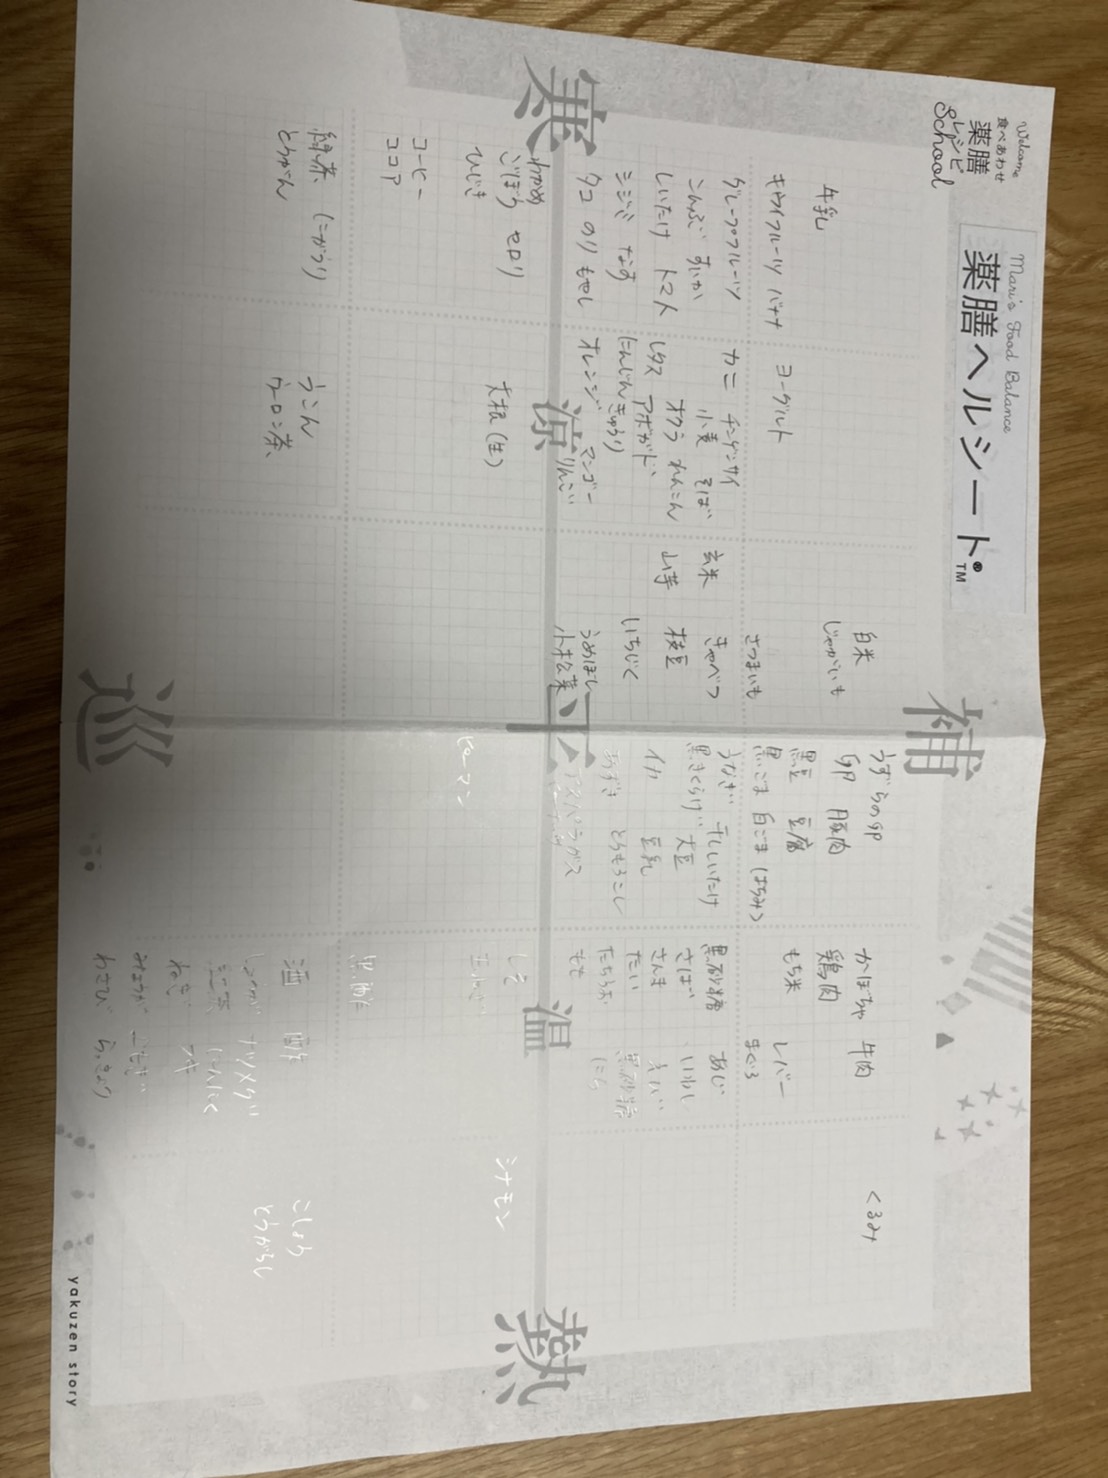 Welcome
食べあわせ
薬膳
レシピ
School
Mari's Food Balance
薬膳ヘルシート®™
補
寒
涼
平
温
熱
巡
牛乳
キウイフルーツ バナナ
グレープフルーツ
こんぶ すいか
しいたけ トマト
シジミ なす
タコ のり もやし
わかめ
ごぼう セロリ
ひじき
コーヒー
ココア
緑茶 (にがうり)
とうがん
ヨーグルト
カニ チンゲンサイ
小麦 そば
オクラ れんこん
レタス アボガド
にんじん きゅうり
オレンジ マンゴー
りんご
大根(生)
うこん
ウーロン茶
白米
じゃがいも
さつまいも
玄米 きゃべつ
山芋 枝豆
いちじく
うめぼし
小松菜
うずらの卵
卵 豚肉
黒豆 豆腐
黒ごま 白ごま (はちみつ)
うなぎ 干ししいたけ
黒きくらげ 大豆
イカ 豆乳
あずき とうもろこし
アスパラガス
ピーマン
かぼちゃ 牛肉
鶏肉
もち米 レバー
まぐろ
黒砂糖 あじ
さば いわし
さんま えび
たい 黒砂糖
たちうお にら
もも
しそ
黒酢
酒 酢
しょうが ナツメグ
にんにく
ねぎ
みょうが
わさび らっきょう
くるみ
シナモン
こしょう
とうがらし
yakuzen story